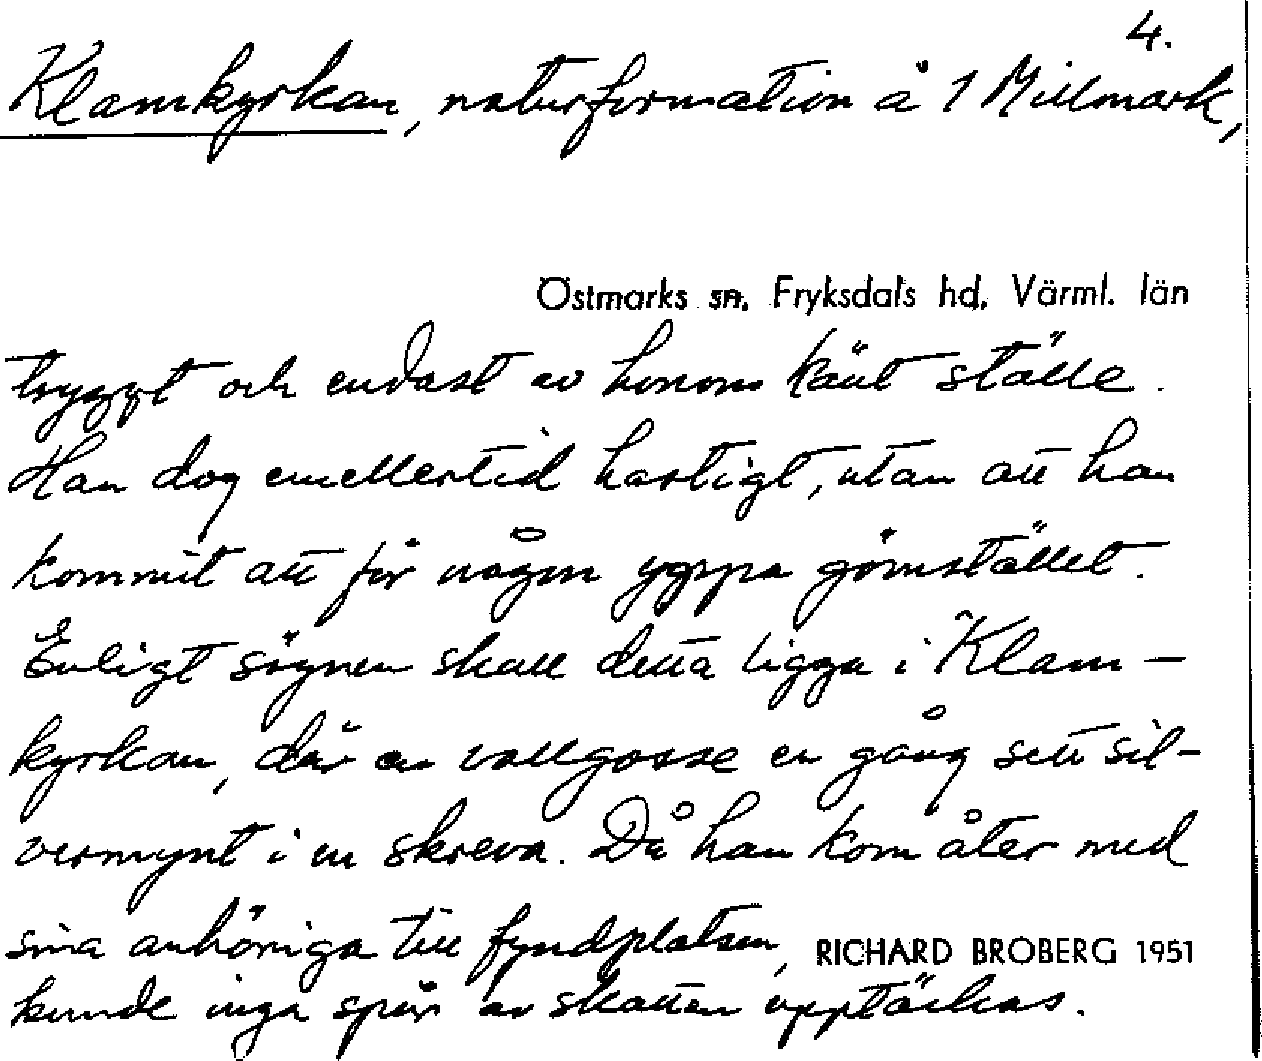 4.
Klamkyrkan, naturformation å 1 Millmark,
Östmarks sn. Fryksdals hd. Värml. län
tryggt och endast av honom känt ställe.
Han dog emellertid hastigt, utan att han
kommit att för någon yppa gömstället.
Enligt sägnen skall detta ligga i Klam-
kyrkan, där en vallgosse en gång sett sil-
vermynt i en skreva. Då han kom åter med
sina anhöriga till fyndplatsen,
RICHARD BROBERG 1951
kunde inga spår av skatten upptäckas.